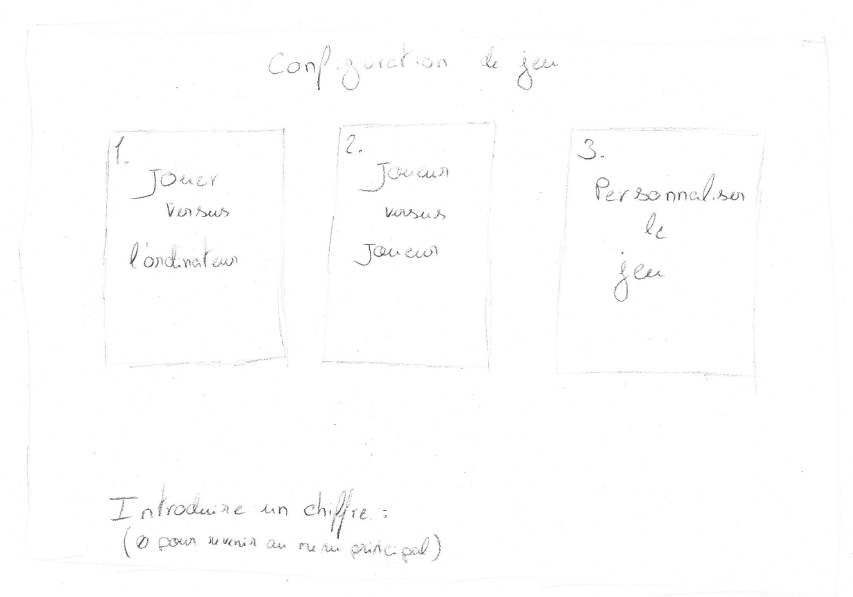 Configuration de jeu
1.
Jouer
versus
l'ordinateur
2.
Joueur
versus
Joueur
3.
Personnaliser
le
jeu
Introduire un chiffre :
(0 pour revenir au menu principal)